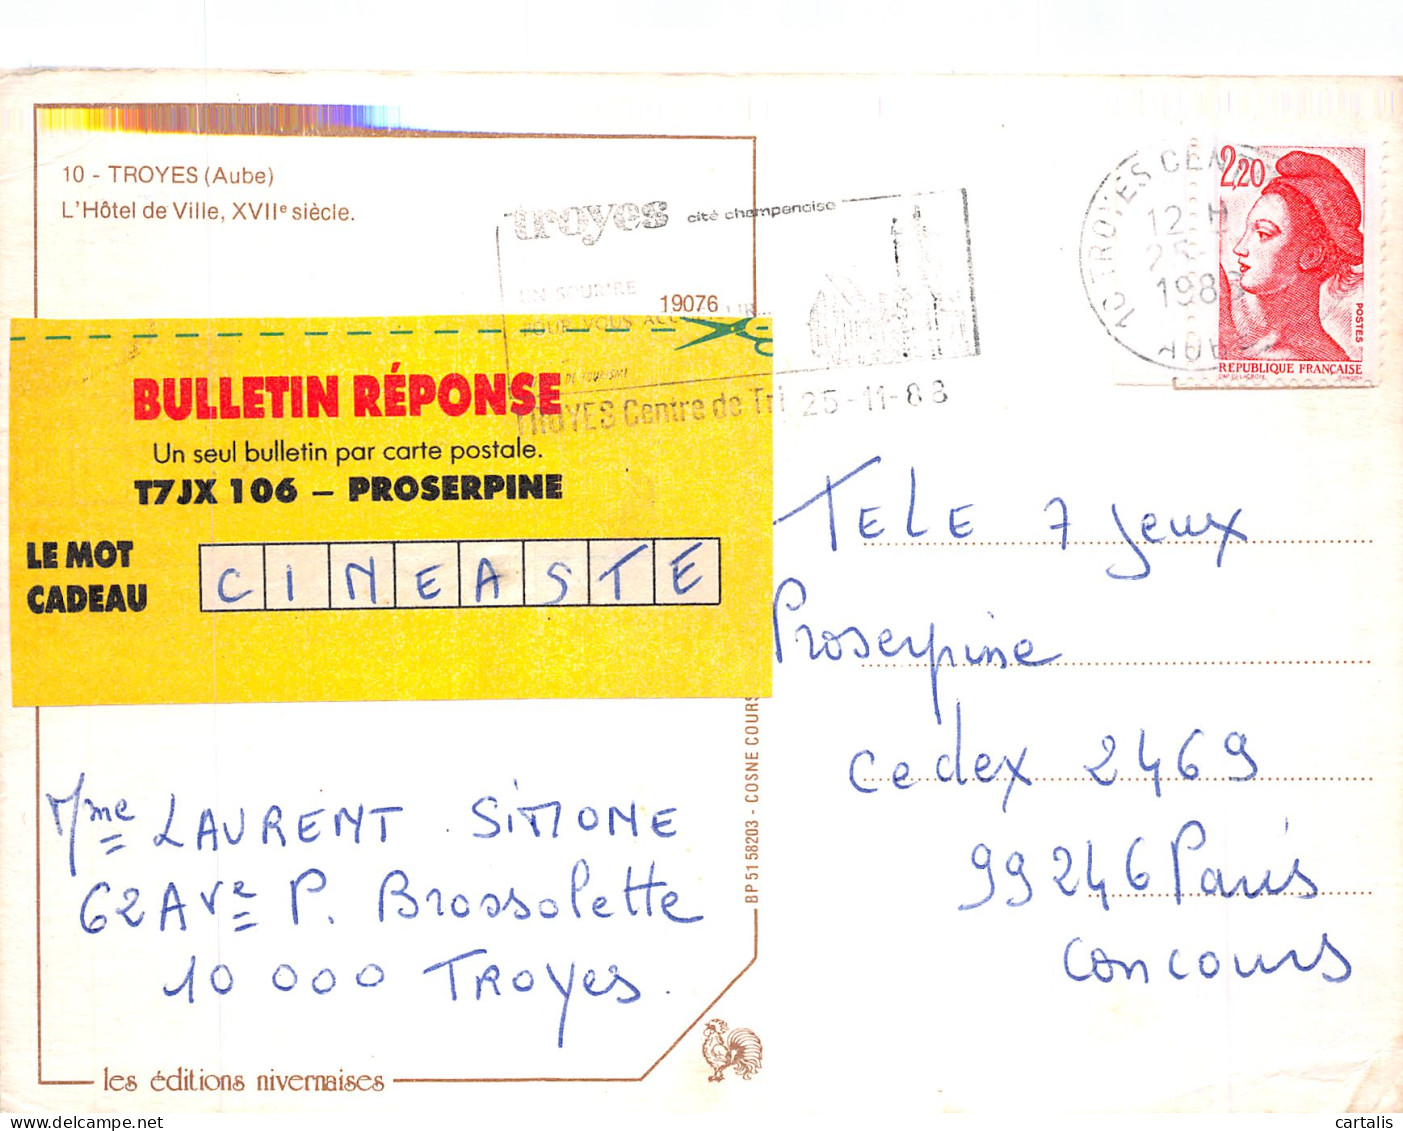 10 - TROYES (Aube)
L'Hôtel de Ville, XVIIe siècle.
troyes cité champenoise
UN SOURIRE
POUR VOUS
19076
DE TOURISME
TROYES Centre de Tri 25-11-88
10 TROYES CENT
12 H
25
1988
AUBE
2,20
POSTES
RÉPUBLIQUE FRANÇAISE
BULLETIN RÉPONSE
Un seul bulletin par carte postale.
T7JX 106 – PROSERPINE
LE MOT
CADEAU
CINEASTE
TELE 7 Jeux
Proserpine
Cedex 2469
99246 Paris
Concours
Mme LAURENT SIMONE
62 Ave P. Brossolette
10 000 TROYES.
BP 51 58203 - COSNE COURS
les éditions nivernaises
cartalis